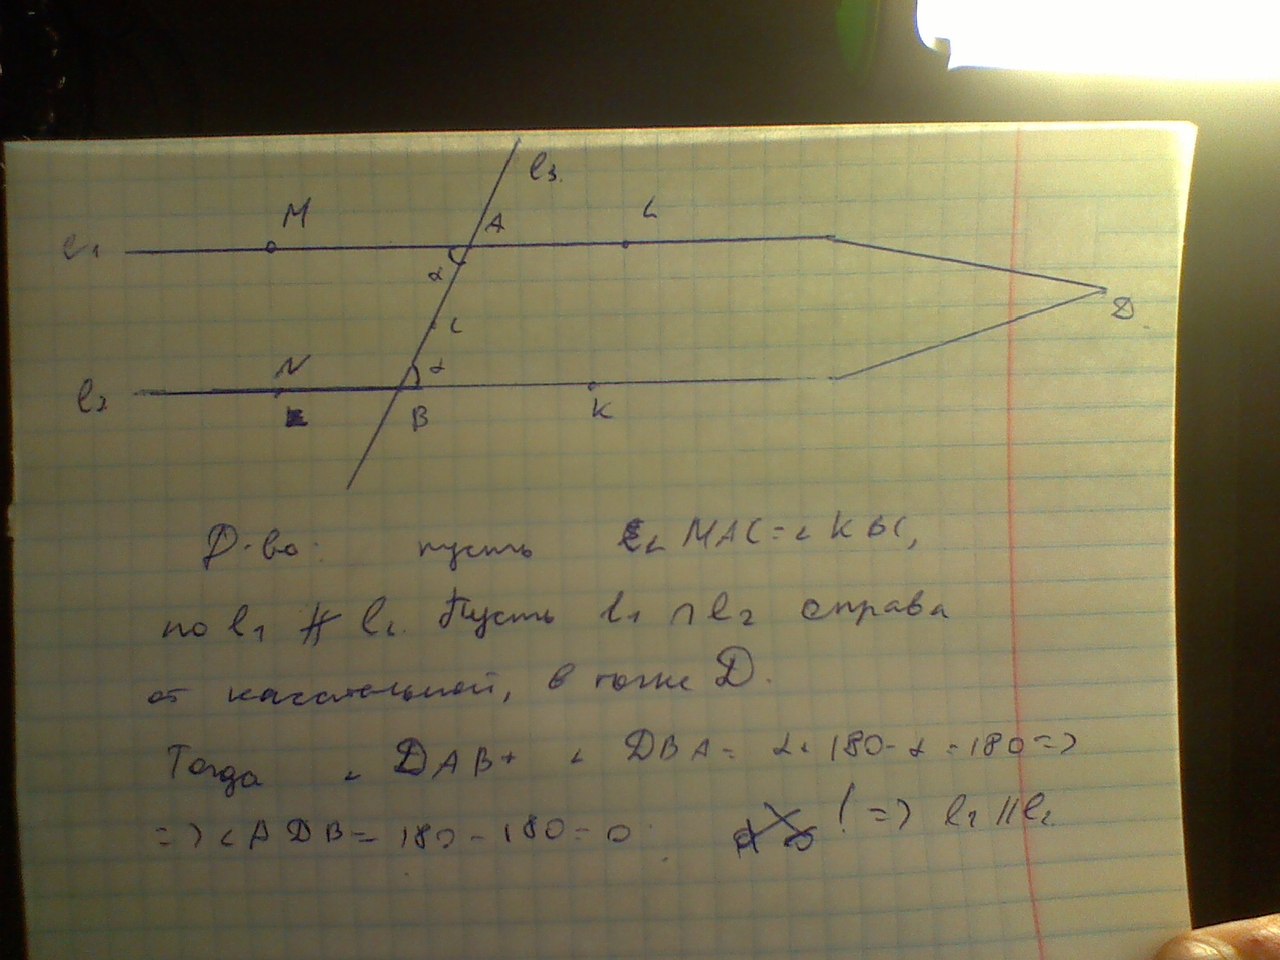 l₃.
M
A
L
l₁
α
C
D.
N
α
l₂
B
K
Д-во: пусть ∠MAC=∠KBC,
но l₁ ∦ l₂. Пусть l₁ ∩ l₂ справа
от касательной, в точке D.
Тогда ∠DAB+ ∠DBA= α+180-α=180=>
=>∠ADB=180-180=0. ! => l₁ || l₂